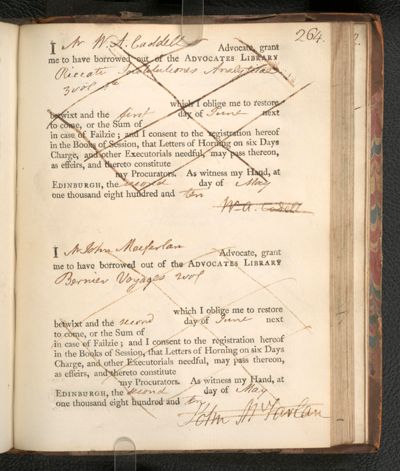 264.
I Mr W. A. Caddell Advocate, grant
me to have borrowed out of the ADVOCATES LIBRARY
Riccati Institutiones Analyticae
3 vol
which I oblige me to restore
betwixt and the first day of June next
to come, or the Sum of
in case of Failzie; and I consent to the registration hereof
in the Books of Session, that Letters of Horning on six Days
Charge, and other Executorials needful, may pass thereon,
as effeirs, and thereto constitute
my Procurators. As witness my Hand, at
EDINBURGH, the second day of May
one thousand eight hundred and ten
Wm. A. Cadell
I Mr John Macfarlan Advocate, grant
me to have borrowed out of the ADVOCATES LIBRARY
Bernier Voyages 2 vol
which I oblige me to restore
betwixt and the second day of June next
to come, or the Sum of
in case of Failzie; and I consent to the registration hereof
in the Books of Session, that Letters of Horning on six Days
Charge, and other Executorials needful, may pass thereon,
as effeirs, and thereto constitute
my Procurators. As witness my Hand, at
EDINBURGH, the second day of May
one thousand eight hundred and ten
John McFarlan